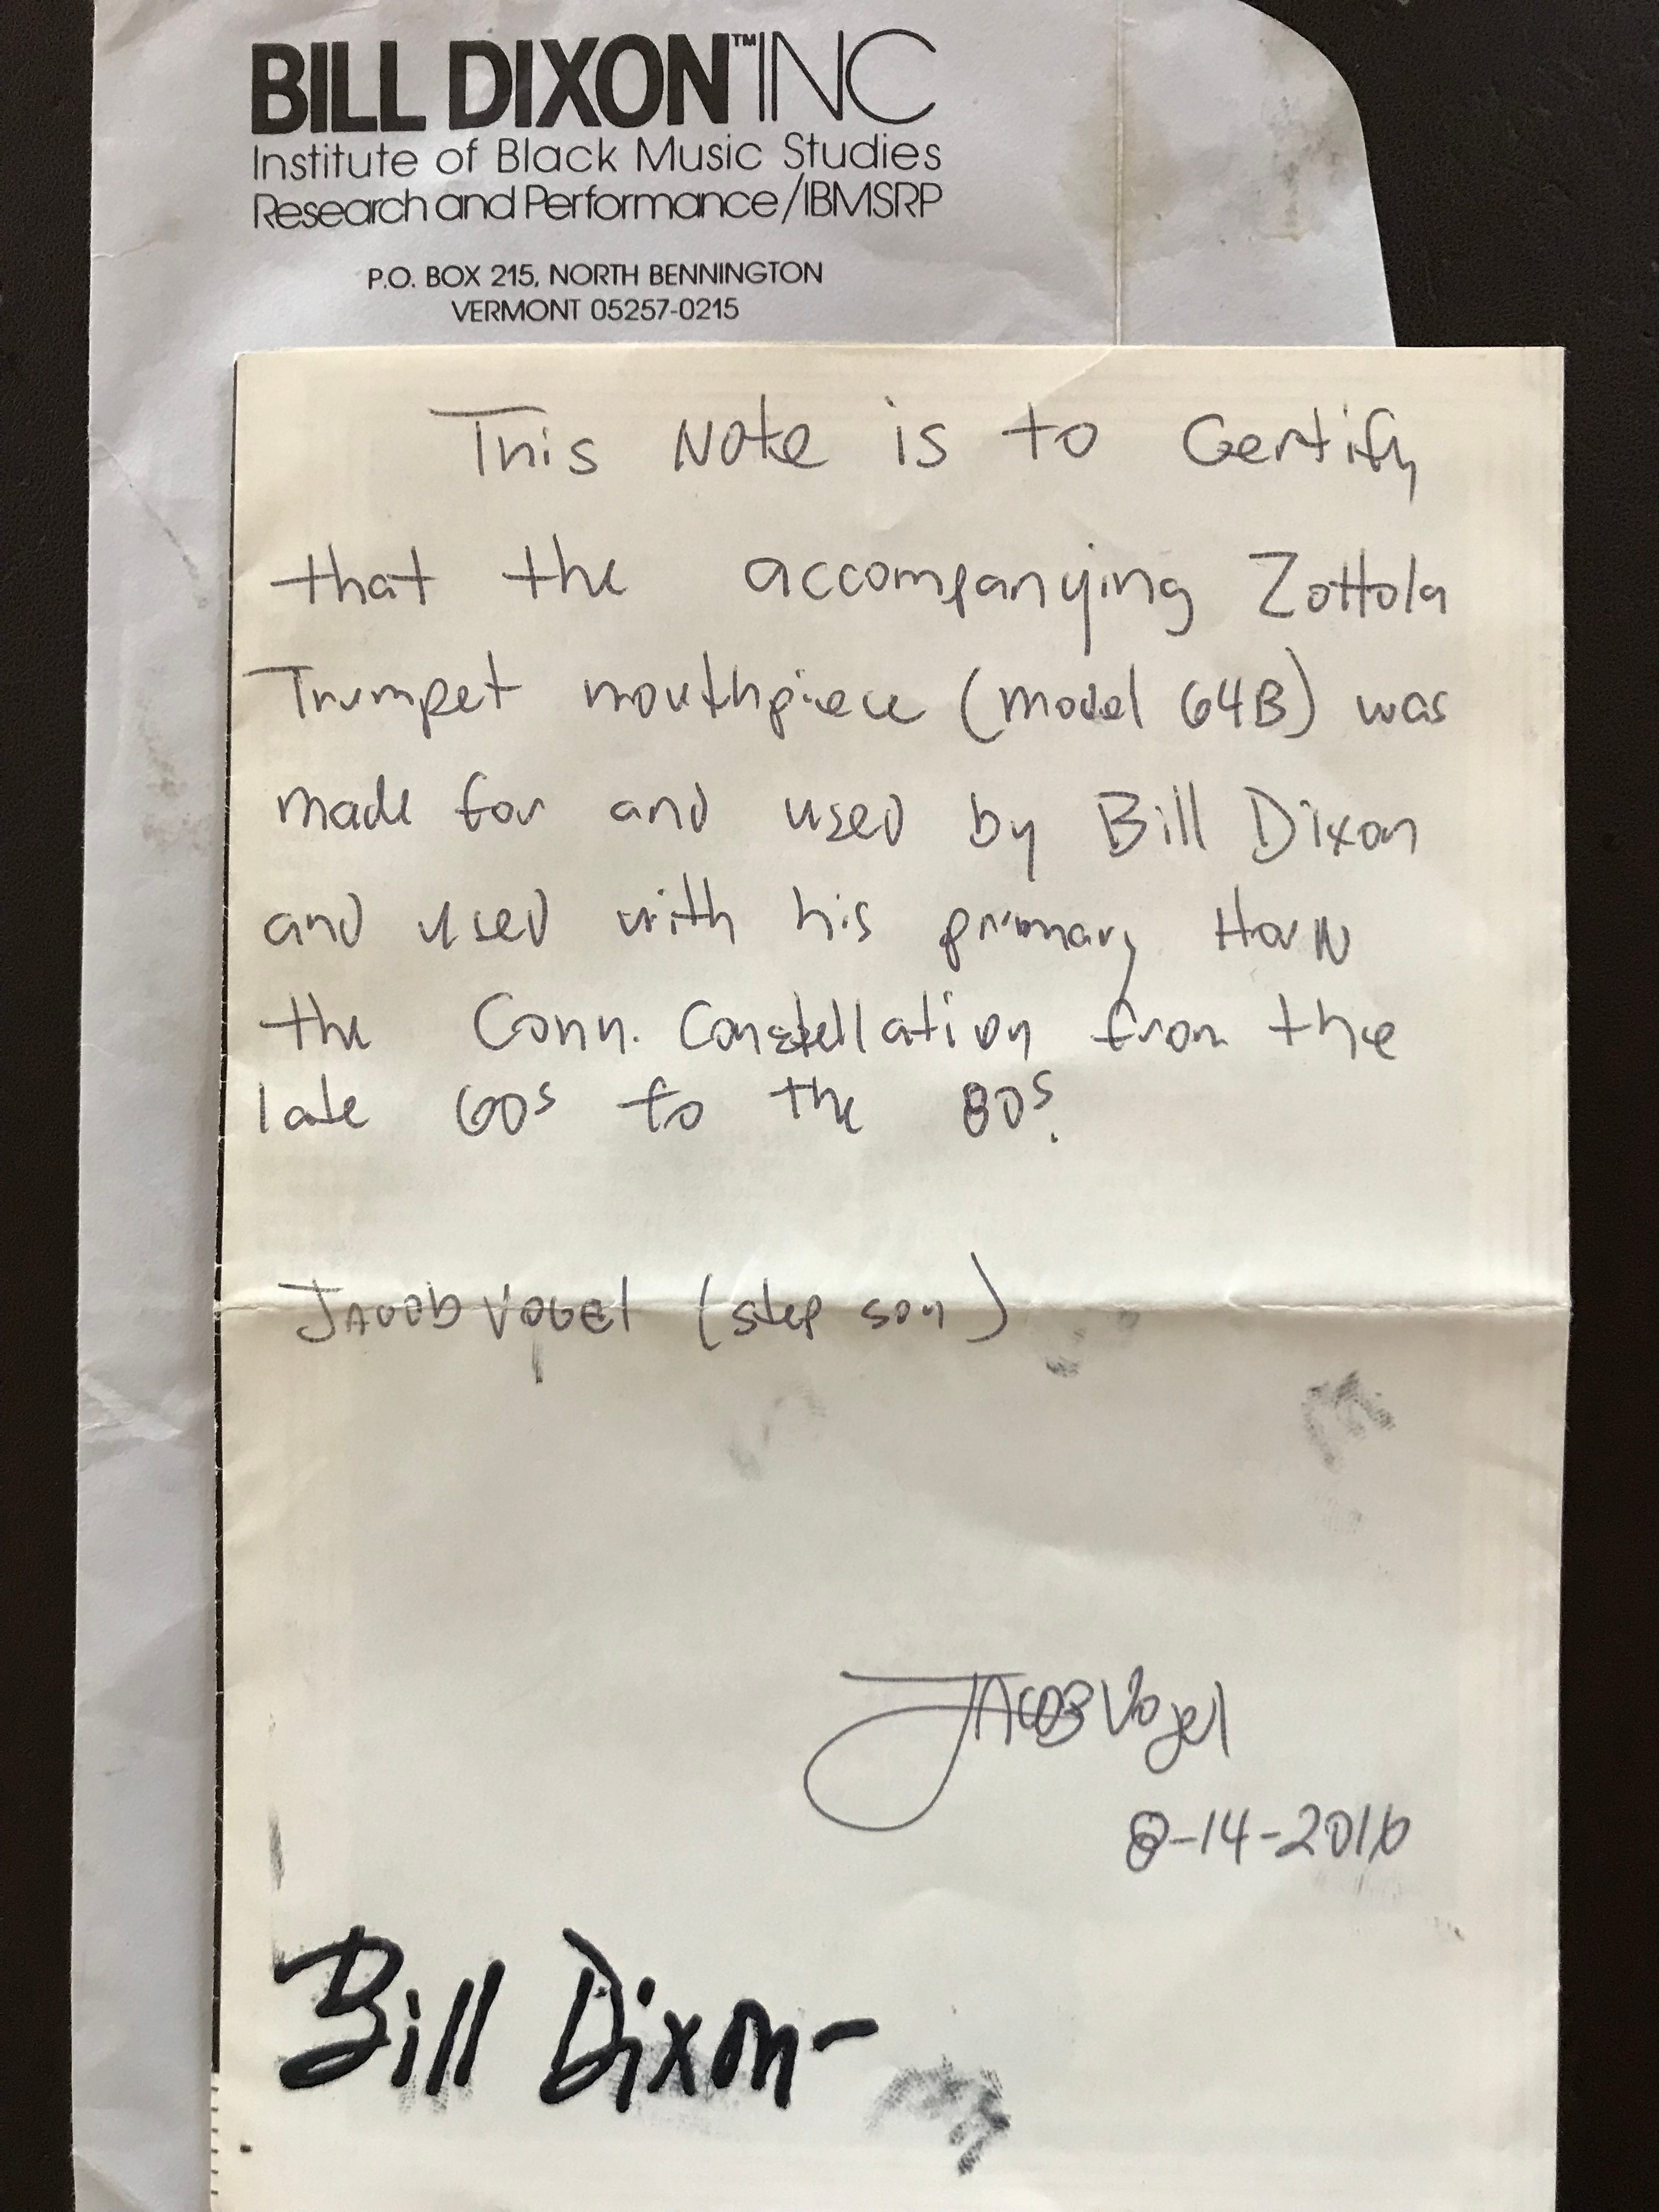 BILL DIXON™INC
Institute of Black Music Studies
Research and Performance/IBMSRP
P.O. BOX 215, NORTH BENNINGTON
VERMONT 05257-0215
This Note is to Certify
that the accompanying Zottola
Trumpet mouthpiece (model 64B) was
made for and used by Bill Dixon
and used with his primary Horn
the Conn. Constellation from the
late 60s to the 80s.
Jacob Vogel (step son)
Jacob Vogel
8-14-2016
Bill Dixon-